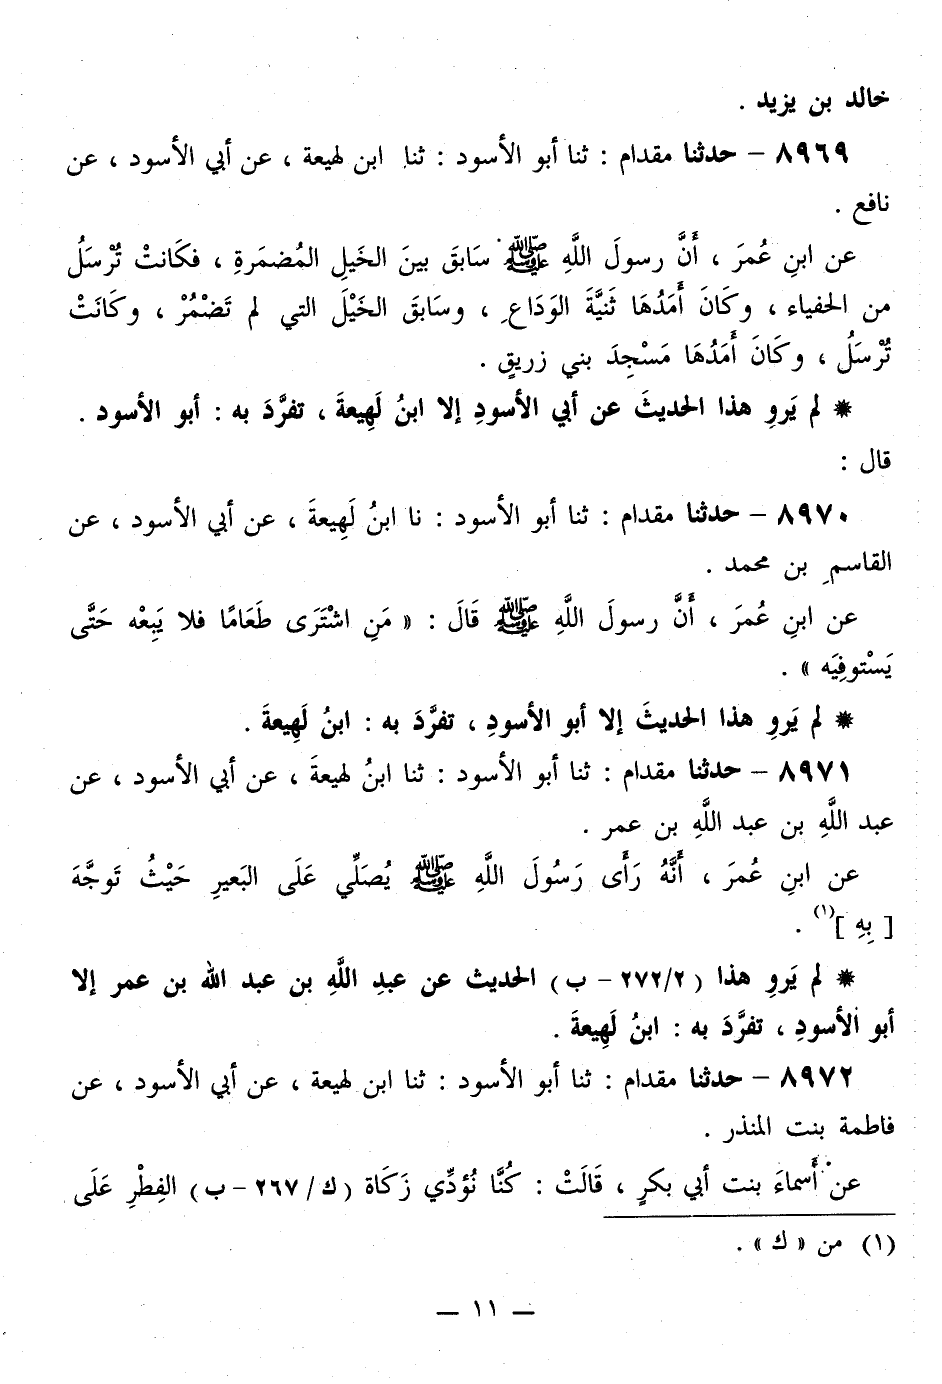 خالد بن يزيد .
٨٩٦٩ – حدثنا مقدام : ثنا أبو الأسود : ثنا ابن لهيعة ، عن أبي الأسود ، عن
نافع .
عن ابنِ عُمرَ ، أَنَّ رسولَ اللَّهِ ﷺ سَابَقَ بينَ الخَيلِ المُضمَرةِ ، فكَانتْ تُرْسَلُ
من الحفياء ، وكَانَ أَمَدُهَا ثَنيَّةَ الوَدَاعِ ، وسَابقَ الخَيْلَ التي لم تَضْمُرْ ، وكَانَتْ
تُرْسَلُ ، وكَانَ أَمَدُهَا مَسْجِدَ بني زريقٍ .
* لم يَروِ هذا الحديثَ عن أبي الأسودِ إلا ابنُ لَهِيعةَ ، تفرَّدَ به : أبو الأسود .
قال :
٨٩٧٠ – حدثنا مقدام : ثنا أبو الأسود : نا ابنُ لَهِيعةَ ، عن أبي الأسود ، عن
القاسمِ بن محمد .
عن ابنِ عُمرَ ، أَنَّ رسولَ اللَّهِ ﷺ قَالَ : « مَنِ اشْتَرَى طَعَامًا فلا يَبِعْه حَتَّى
يَسْتوفِيَه » .
* لم يَروِ هذا الحديثَ إلا أبو الأسودِ ، تفرَّدَ به : ابنُ لَهِيعةَ .
٨٩٧١ – حدثنا مقدام : ثنا أبو الأسود : ثنا ابنُ لهيعةَ ، عن أبي الأسود ، عن
عبد اللَّهِ بن عبد اللَّهِ بن عمر .
عن ابنِ عُمرَ ، أَنَّهُ رَأَى رَسُولَ اللَّهِ ﷺ يُصَلِّي عَلَى البَعيرِ حَيْثُ تَوجَّهَ
[ بِهِ ](١) .
* لم يَروِ هذا (٢/٢٧٢ – ب) الحديث عن عبدِ اللَّهِ بن عبد الله بن عمر إلا
أبو الأسودِ ، تفرَّدَ به : ابنُ لَهِيعةَ .
٨٩٧٢ – حدثنا مقدام : ثنا أبو الأسود : ثنا ابن لهيعة ، عن أبي الأسود ، عن
فاطمة بنت المنذر .
عنْ أَسماءَ بنت أبي بكرٍ ، قَالَتْ : كُنَّا نُؤدِّي زَكَاة (ك/ ٢٦٧ – ب) الفِطْرِ عَلَى
(١) من « ك » .
– ١١ –